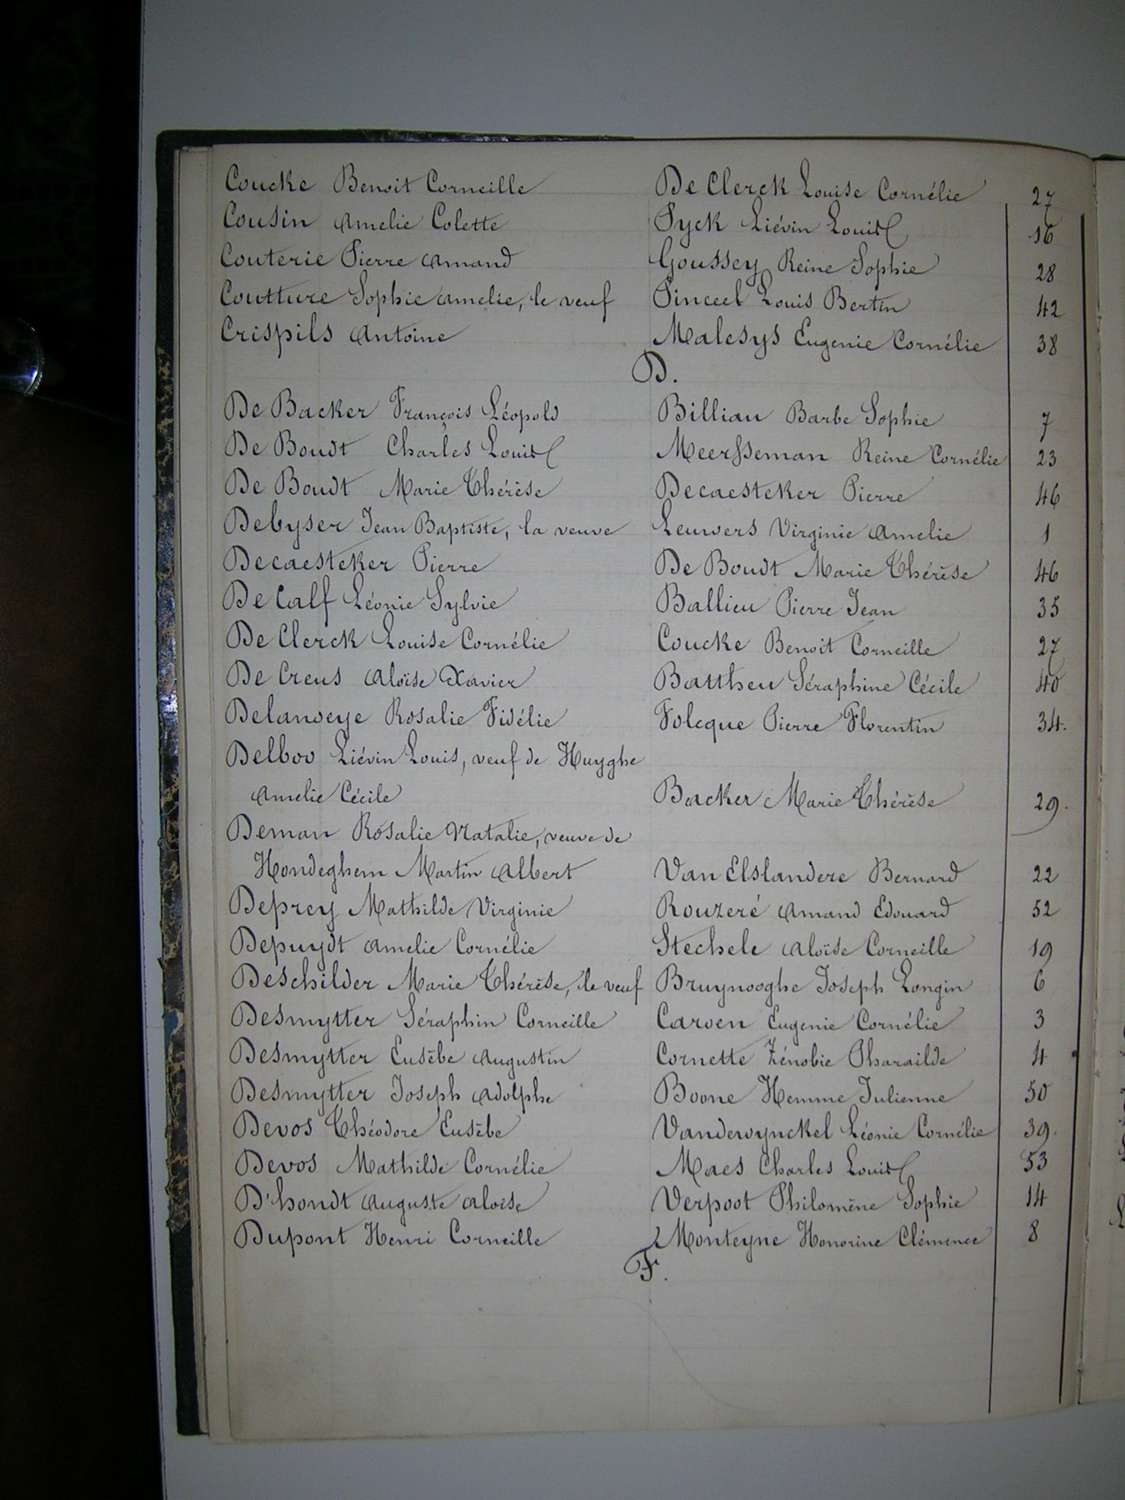 Coucke Benoit Corneille De Clerck Louise Cornélie 27
Cousin Amelie Colette Syck Liévin Louis 16
Couterie Pierre Amand Goussey Reine Sophie 28
Coutture Sophie Amelie, le veuf Pinceel Louis Bertin 42
Crispils Antoine Malesys Eugenie Cornélie 38
D.
De Backer François Léopold Billiau Barbe Sophie 7
De Boudt Charles Louis Meersseman Reine Cornélie 23
De Boudt Marie Thérèse Decaesteker Pierre 46
Debyser Jean Baptiste, la veuve Leuwers Virginie Amelie 1
Decaesteker Pierre De Boudt Marie Thérèse 46
De Calf Léonie Sylvie Ballieu Pierre Jean 35
De Clerck Louise Cornélie Coucke Benoit Corneille 27
De Creus Aloïse Xavier Battheu Séraphine Cécile 40
Delanoeye Rosalie Fidélie Folcque Pierre Florentin 34.
Delboo Liévin Louis, veuf de Huyghe
Amelie Cécile Backer Marie Thérèse 29.
Deman Rosalie Natalie, veuve de
Hondeghem Martin Albert Van Elslandere Bernard 22
Deprey Mathilde Virginie Rouzeré Amand Edouard 52
Depuydt Amelie Cornélie Stechele Aloïse Corneille 19
Deschilder Marie Thérèse, le veuf Bruynooghe Joseph Longin 6
Desmytter Séraphin Corneille Caroen Eugenie Cornélie 3
Desmytter Eusèbe Augustin Cornette Zénobie Pharaïlde 4
Desmytter Joseph Adolphe Boone Hemme Julienne 50
Devos Théodore Eusèbe Vandewynckel Léonie Cornélie 39.
Devos Mathilde Cornélie Maes Charles Louis 53
D'hondt Auguste Aloïse Verpoot Philomène Sophie 14
Dupont Henri Corneille Monteyne Honorine Clémence 8
F.